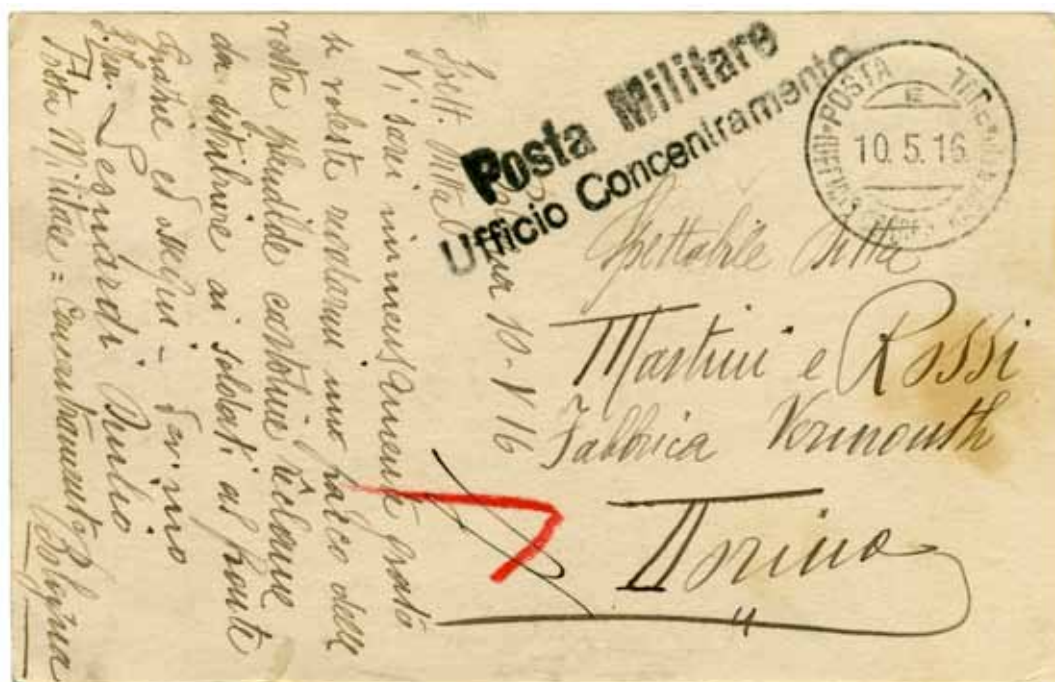 Posta Militare
Ufficio Concentramento
POSTA
10.5.16.
Spettabile Ditta
Martini e Rossi
Fabbrica Vermouth
Torino
10-V-16
Spett. Ditta
Vi sarei immensamente grato
se voleste mandarmi un pacco delle
vostre splendide cartoline réclame
da distribuire ai soldati al fronte
Grazie ed ossequi
Giulio
Posta Militare = Concentramento Bologna